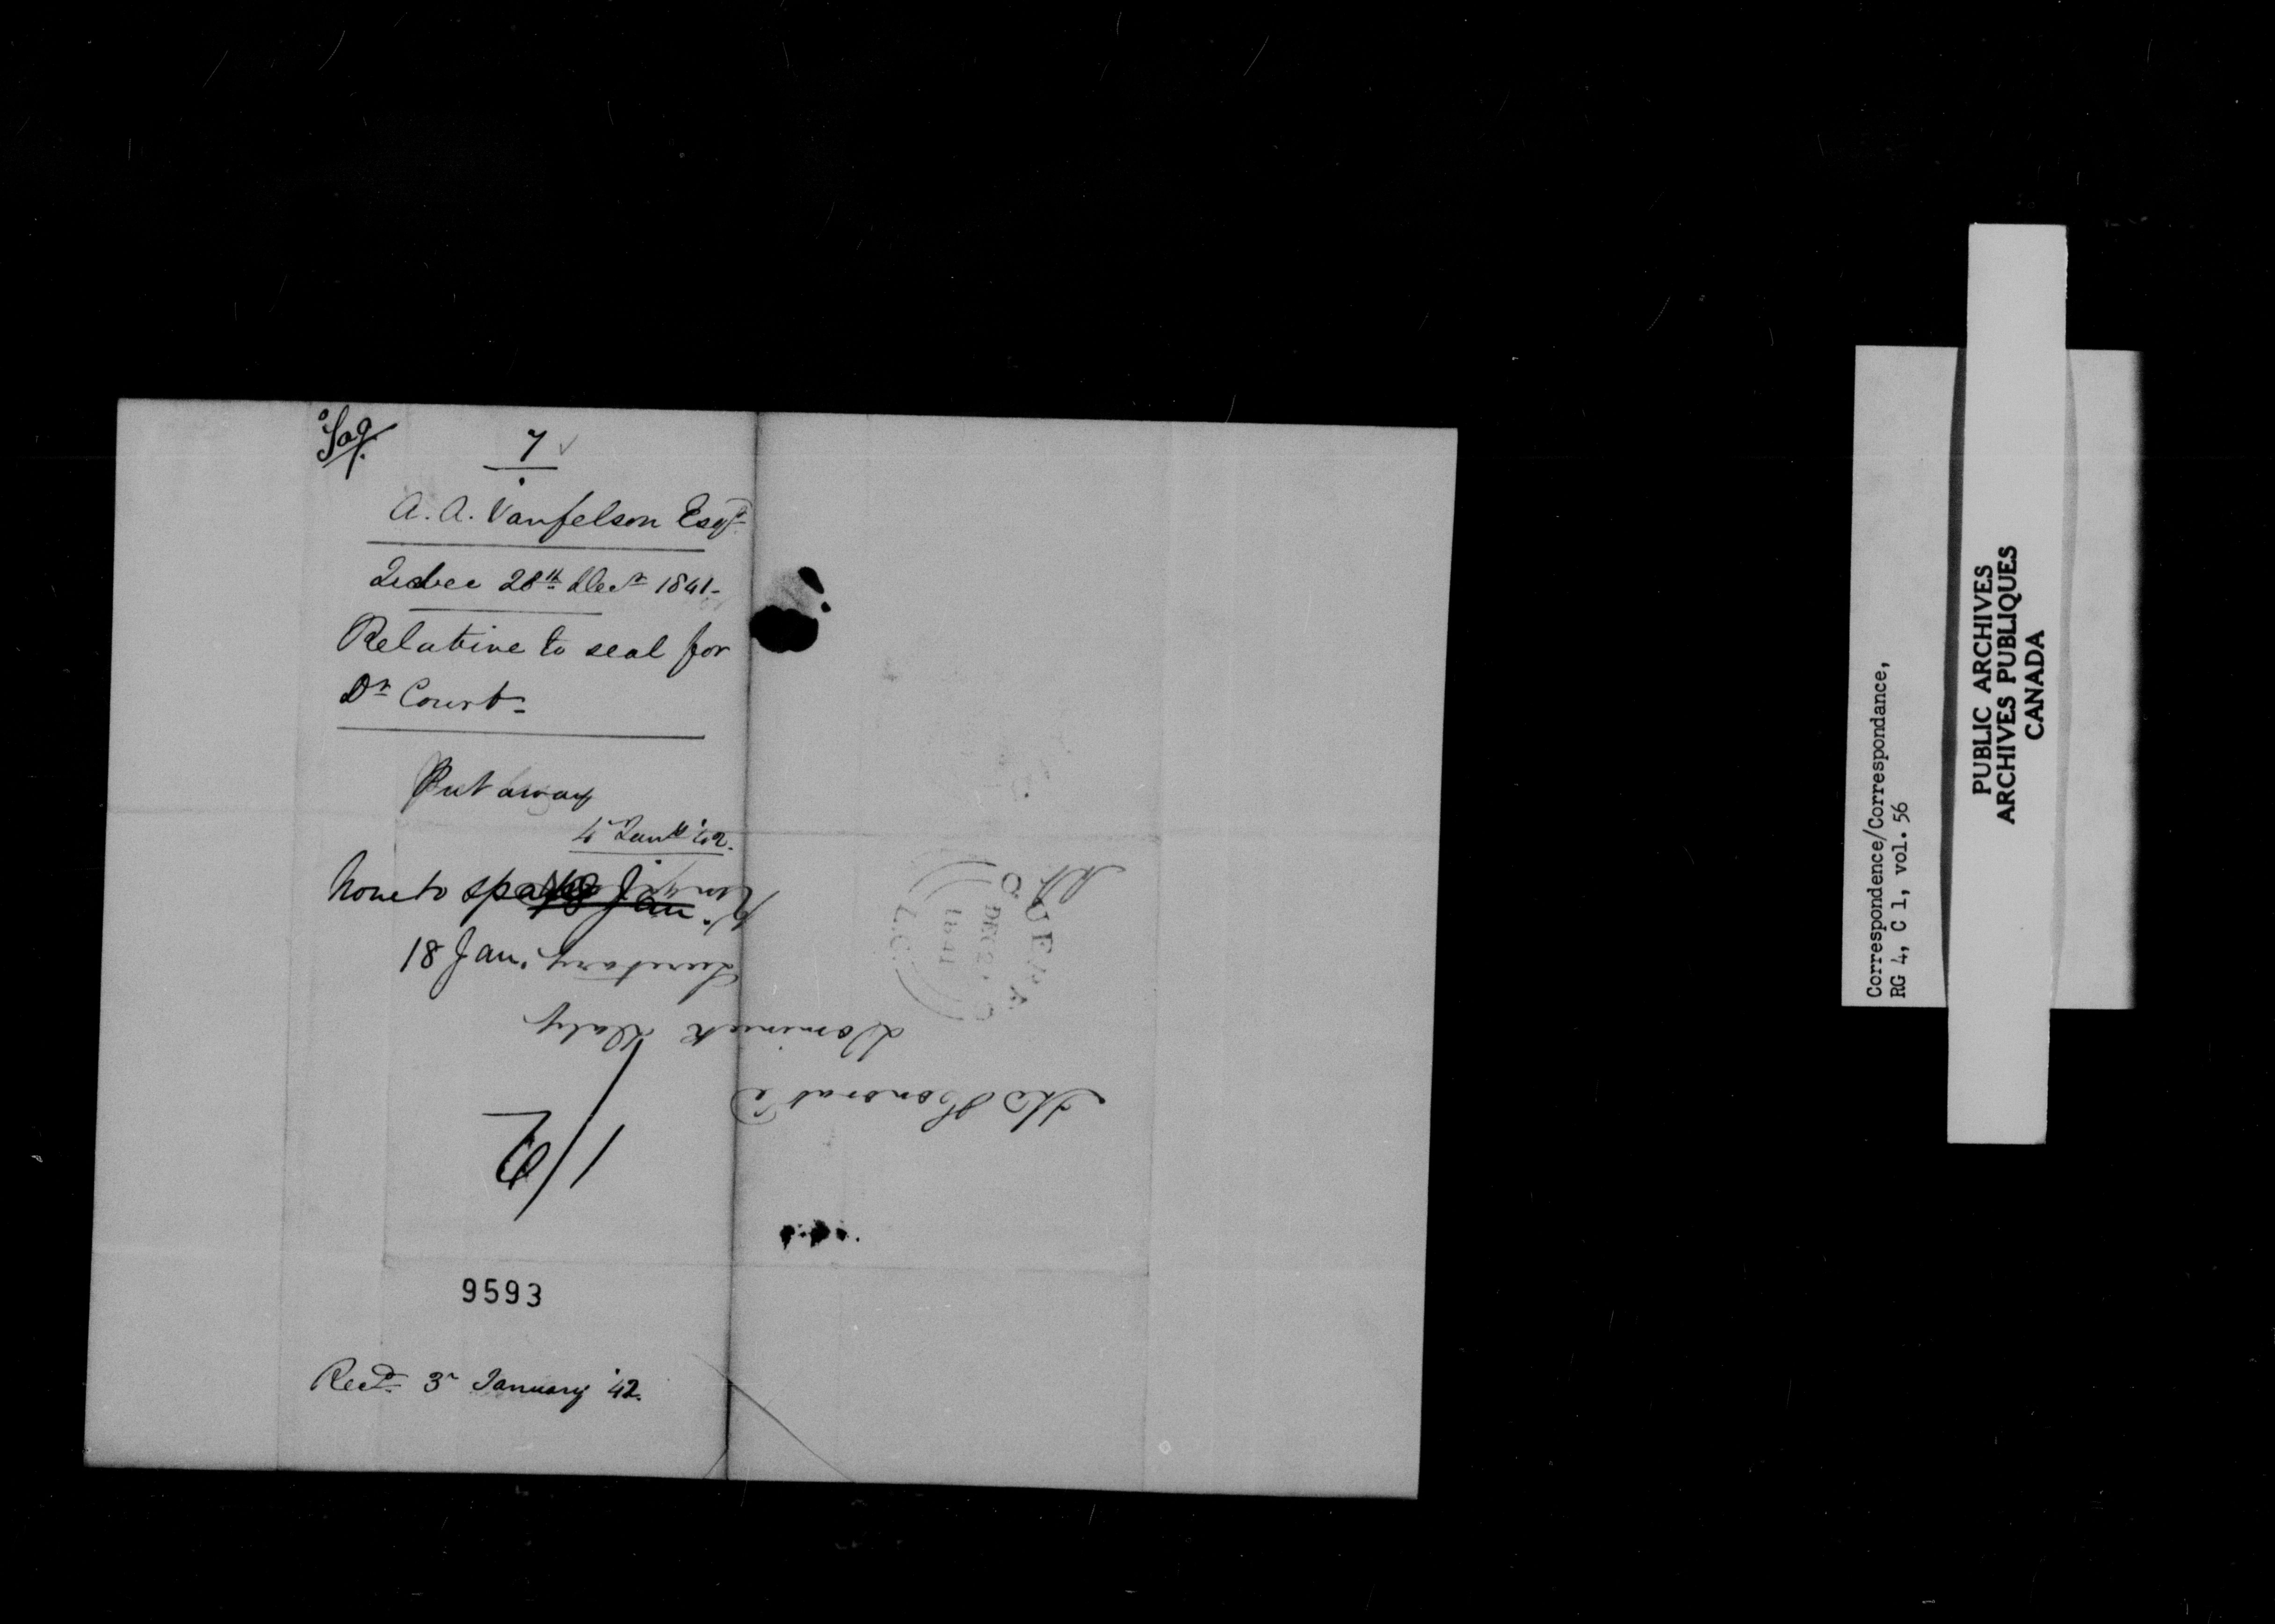 7
A. A. Vanfelson Esqr
Quebec 28th Decr 1841-
Relative to seal for
Dr Court-
Put away
4 Jany '42.
None to spare
18 Jan.
18 Jan.
9593
Recd 3r January '42.
The Honorable
Dominick Daly
Secretary
QUEBEC
DEC 2
1841
L.C.
Correspondence/Correspondance,
RG 4, C 1, vol. 56
PUBLIC ARCHIVES
ARCHIVES PUBLIQUES
CANADA